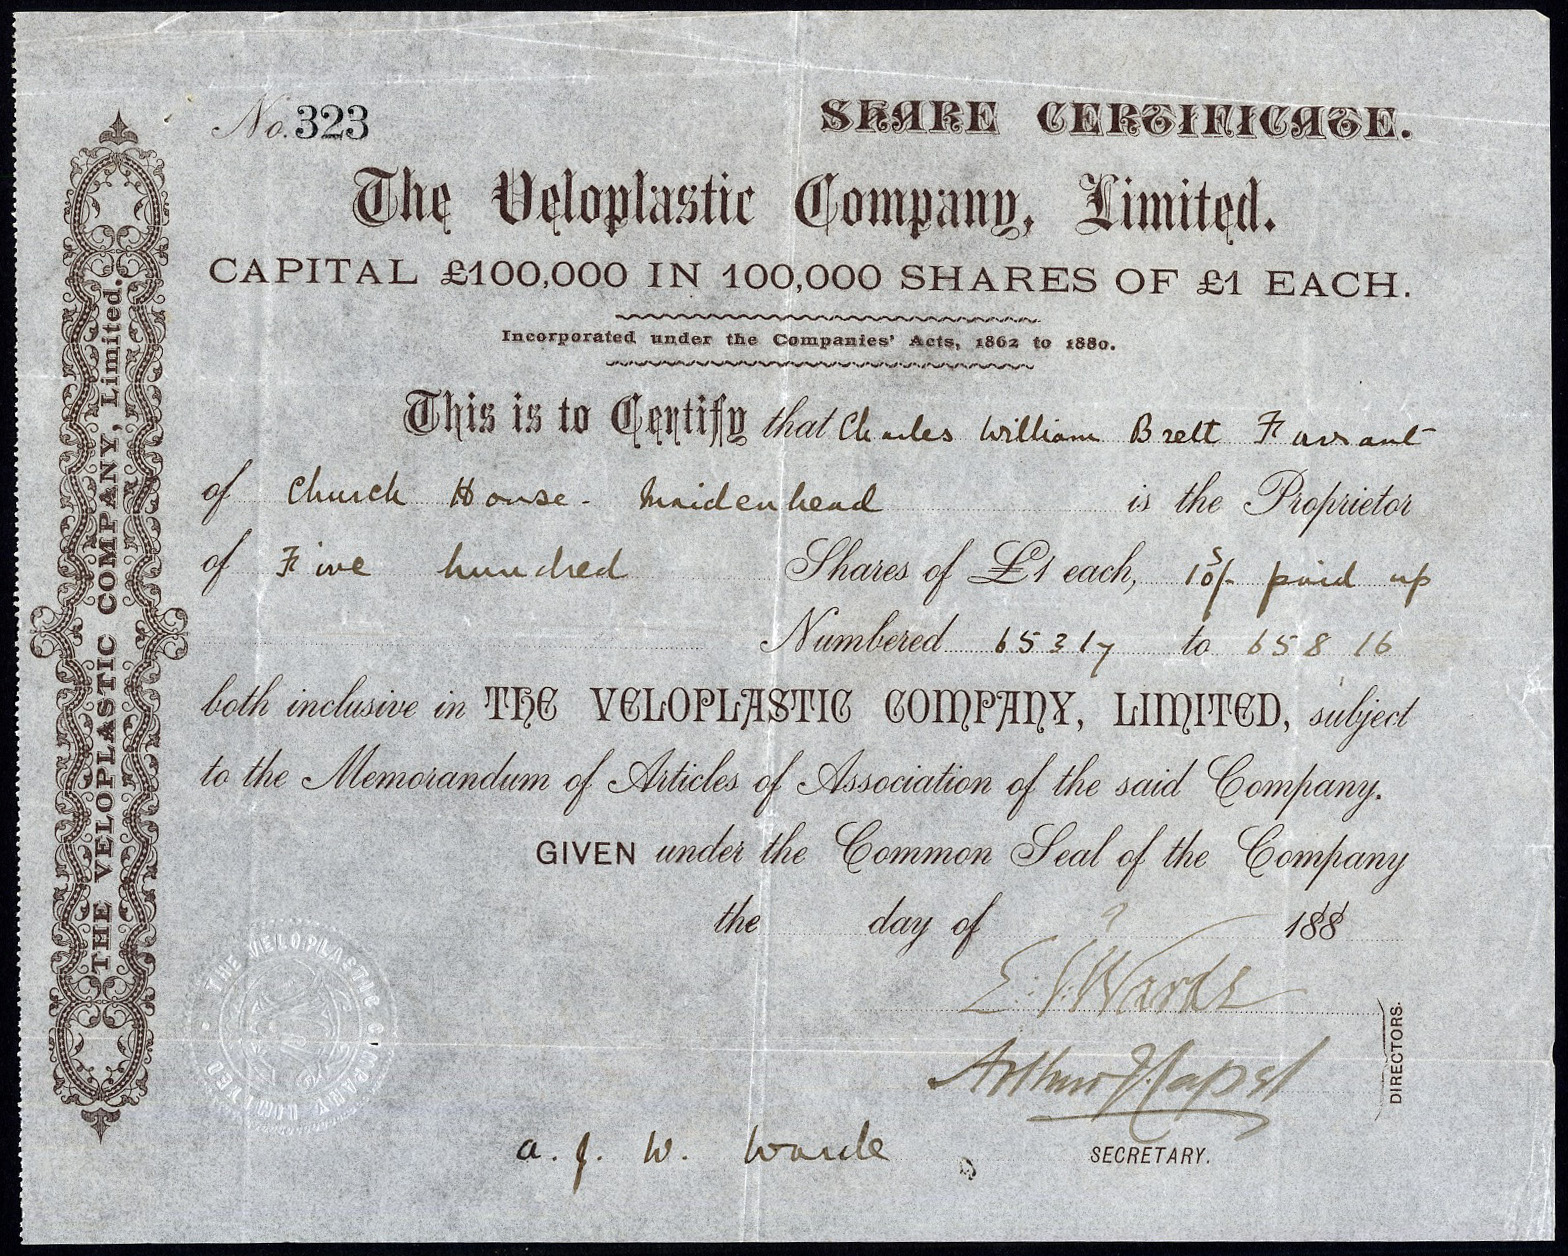 No. 323
SHARE CERTIFICATE.
The Veloplastic Company, Limited.
CAPITAL £100,000 IN 100,000 SHARES OF £1 EACH.
Incorporated under the Companies' Acts, 1862 to 1880.
This is to Certify that Charles William Brett Farrant
of Church House - Maidenhead is the Proprietor
of Five hundred Shares of £1 each, paid up
Numbered 65317 to 65816
both inclusive in THE VELOPLASTIC COMPANY, LIMITED, subject
to the Memorandum of Articles of Association of the said Company.
GIVEN under the Common Seal of the Company
the day of 188
E. Warde
Arthur
DIRECTORS.
a. J. W. Warde
SECRETARY.
THE VELOPLASTIC COMPANY, Limited.
THE VELOPLASTIC COMPANY LIMITED